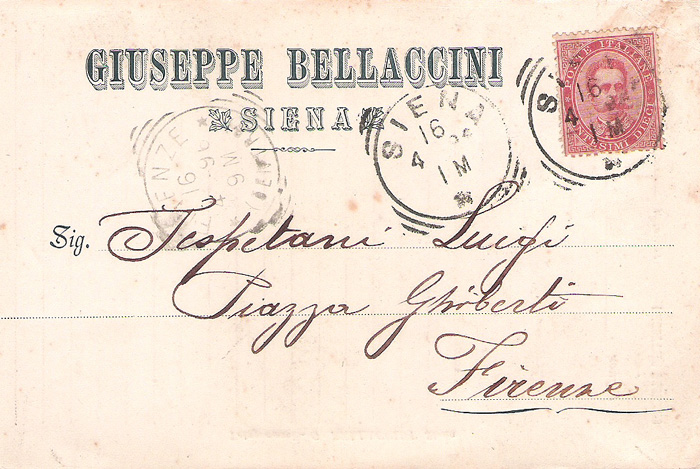 GIUSEPPE BELLACCINI
SIENA
SIENA
16
4
1 M
POSTE ITALIANE
CENTESIMI DIECI
S
16
4
1 M
16
Sig. Tespetani Luigi
Piazza Ghiberti
Firenze